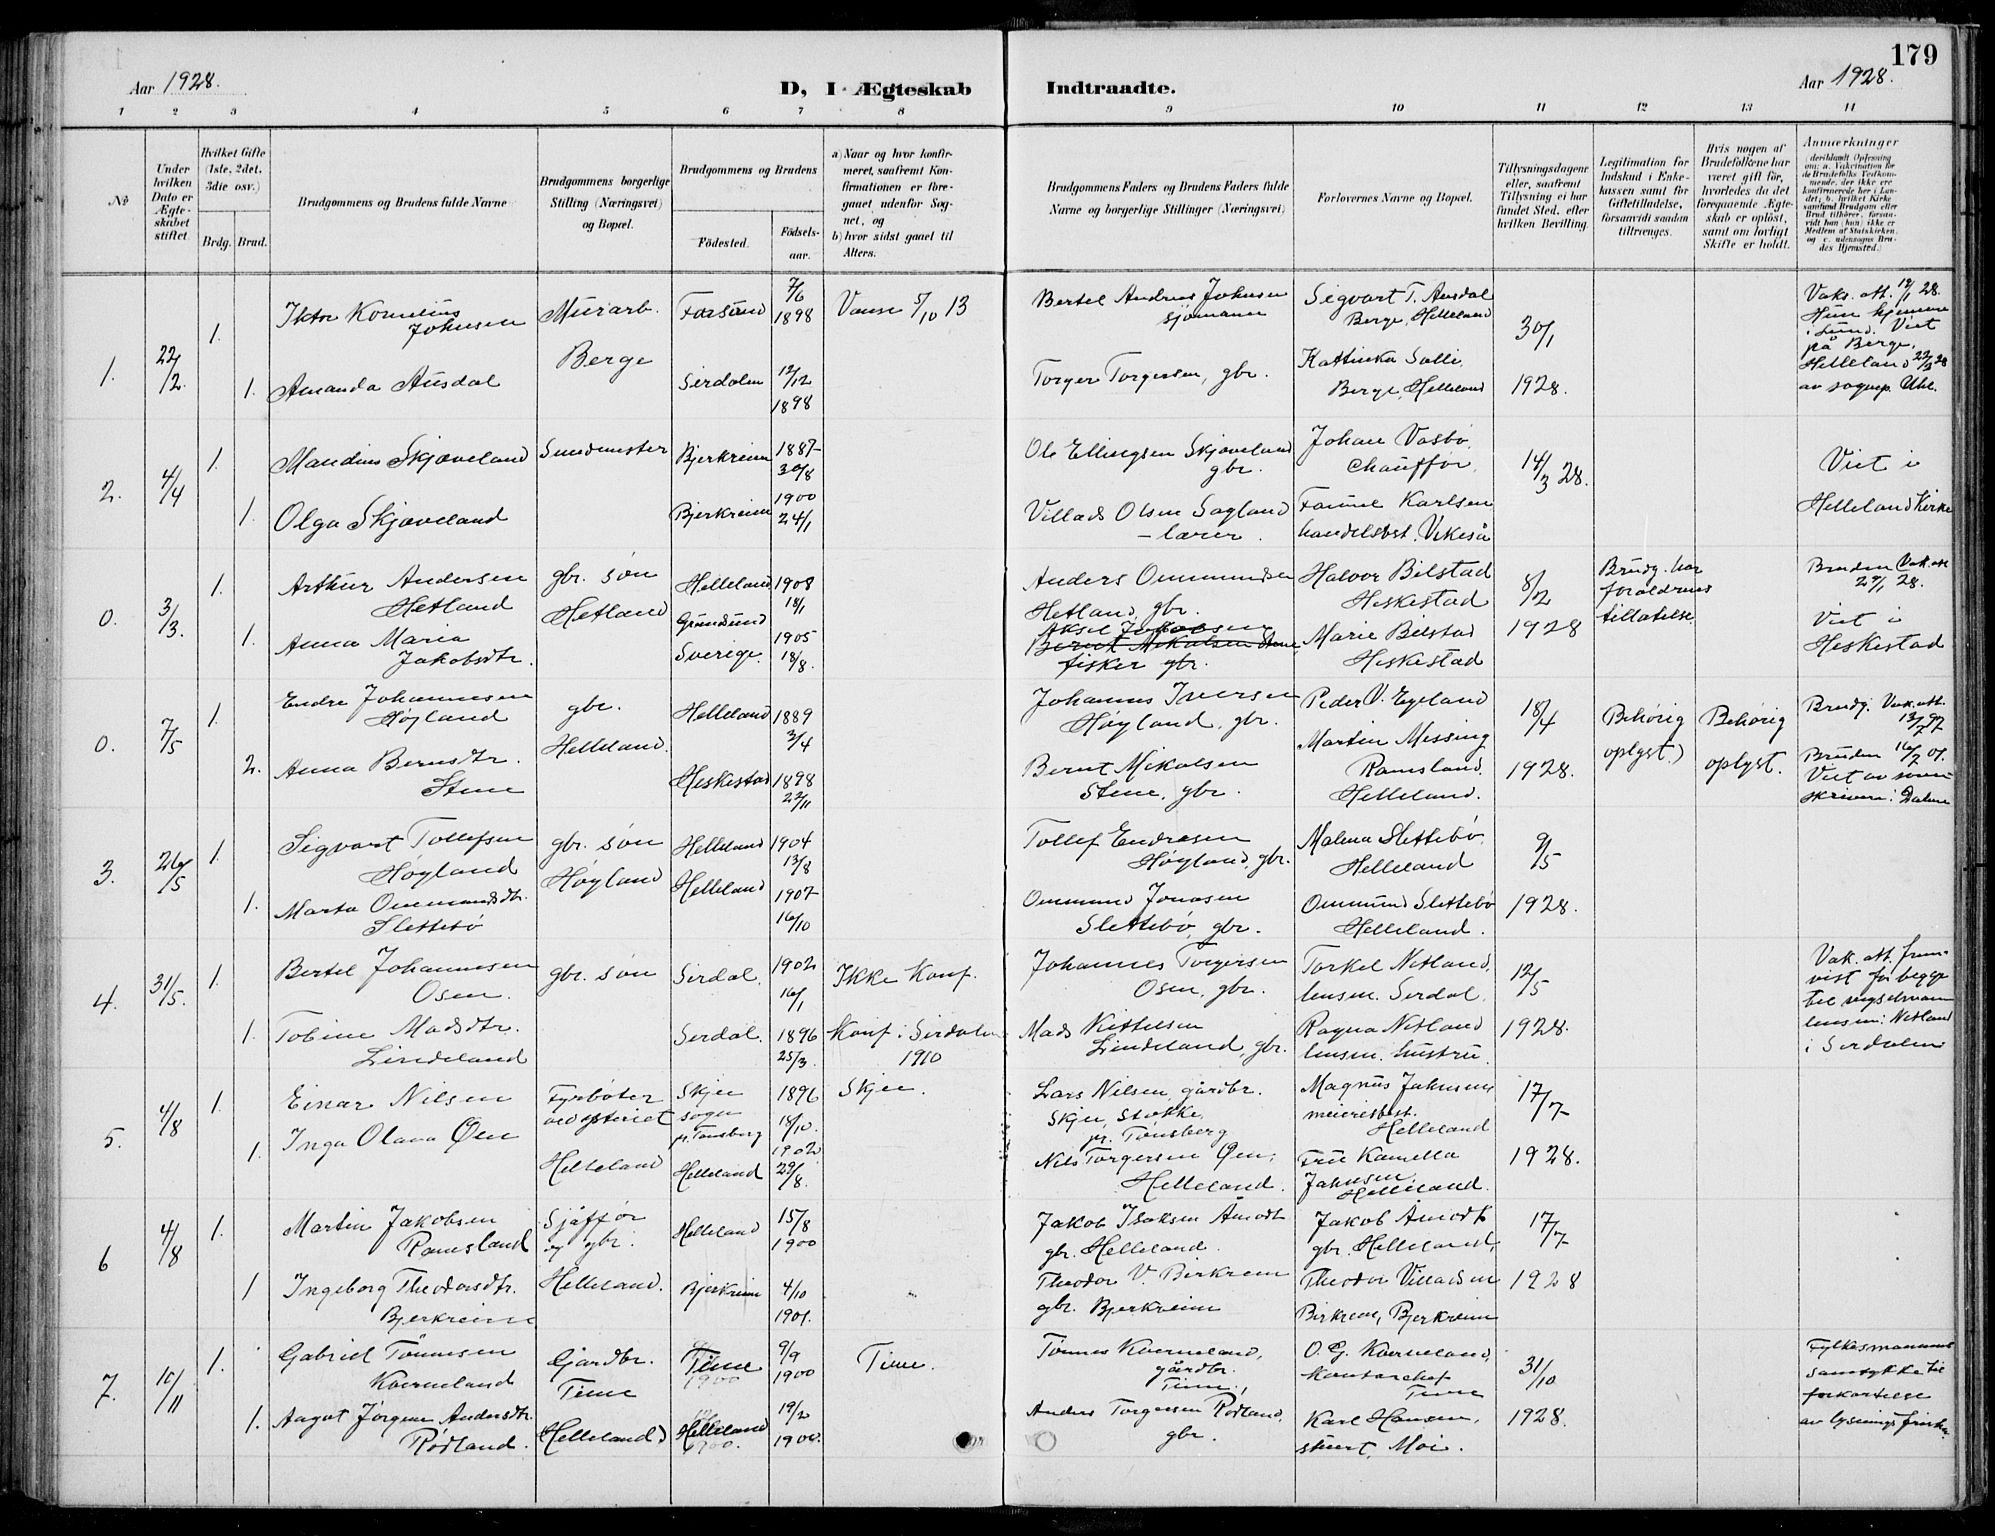 179
Aar 1928.
D, I Ægteskab
Indtraadte.
Aar 1928.
1 2 3 4 5 6 7 8 9 10 11 12 13 14
№
Under hvilken Dato er Ægteskabet stiftet.
Hvilket Gifte (1ste, 2det, 3die osv.)
Brdg. Brud.
Brudgommens og Brudens fulde Navne
Brudgommens borgerlige Stilling (Næringsvei) og Bopæl.
Brudgommens og Brudens
Födested.
Födselsaar.
a) Naar og hvor konfirmeret, saafremt Konfirmationen er foregaaet udenfor Sognet, og
b) hvor sidst gaaet til Alters.
Brudgommens Faders og Brudens Faders fulde Navne og borgerlige Stillinger (Næringsvei)
Forlovernes Navne og Bopæl.
Tillysningsdagene eller, saafremt Tillysning ei har fundet Sted, efter hvilken Bevilling.
Legitimation for Indskud i Enkekassen samt for Giftetilladelse, forsaavidt saadan tiltrænges.
Hvis nogen af Brudefolkene har været gift før, hvorledes da det foregaaende Ægteskab er oplöst, samt om lovligt Skifte er holdt.
Anmærkninger
1. 22/2. 1.
Johnsen
Murarb.
Berge
7/6 1898
5/10 13
Bertel Andreas Johnsen
sjömann
Sigvart T. Ausdal
Berge, Helleland
30/1
1928.
1. Amanda Ausdal
Sirdalen
12/12 1898
Torger Torgersen, gbr.
Berge, Helleland
Vaks. att. 12/1 28.
i Lund. Viet
på Berge,
Helleland
2. 4/4 1.
Skjæveland
Bjerkreim
1887
30/8
Ole Ellingsen Skjæveland
gbr.
Johan Vasbø
Chauffør.
14/3 28.
Viet i
Helleland Kirke
1. Olga Skjæveland
Bjerkreim
1900
24/1
Villads Olsen Sagland
– lærer.
Karlsen
handelsbest. Vikeså
0. 3/3. 1.
Arthur Andersen
Hetland
gbr. søn
Hetland
Helleland
1908
18/1
Anders Ommundsen
Hetland, gbr.
Halvor Bilstad
Heskestad
8/2
1928
Brudg. har
forældrenes
tillatelse.
Bruden Vak. att.
Viet i
Heskestad
1. Anna Maria
Jakobsdtr.
Sverige.
1905
18/8.
Aksel Jakobsen
Bernt Mikalsen Stene,
fisker gbr.
Marie Bilstad
Heskestad
0. 7/5 1.
Endre Johannesen
Høyland
gbr.
Helleland.
Helleland
1889
3/4
Johannes Iversen
Høyland, gbr.
Peder V. Egeland
18/4
1928.
Behørig
oplyst.)
Behørig
oplyst.
Brudg. Vak. att.
2. Anna Berntsdtr.
Stene
Heskestad
1898
22/11
Bernt Mikalsen
Stene, gbr.
Martin Missing
Ramsland.
Helleland.
Bruden
3. 26/5 1.
Sigvart Tollefsen
Høyland
gbr. søn
Høyland
Helleland
1904
13/8
Tollef Endresen
Høyland, gbr.
Malena Slettebø
Helleland
9/5
1928.
1. Marta Ommundsdtr.
Slettebø
Helleland
1907
16/10
Ommund Jonasen
Slettebø, gbr.
Ommund Slettebø
Helleland.
4. 31/5. 1.
Bertel Johannesen
Osen.
gbr. søn
Sirdal.
1902
16/1
Ikke Konf.
Johannes Torgersen
Osen, gbr.
Torkel Netland,
lensm. Sirdal.
12/5
1928.
Vak. att. frem-
vist for begge
i Sirdalen
1. Tobine Madsdtr.
Lindeland
Sirdal.
1896
25/3.
Konf. i Sirdalen
1910
Mads Kittelsen
Lindeland, gbr.
Ragna Netland
lensm. hustru.
5. 4/8 1.
Einar Nilsen
Fyrbøter
ved meieriet
Helleland
Skjee
sogn
pr. Tønsberg
1896
18/10.
Skjee.
Lars Nilsen, gårdbr.
Skjee, Stokke,
pr. Tønsberg
Magnus Jahnsen
meieribest.
Helleland
17/7
1928.
1. Inga Olava Øen
Helleland
1902
29/8.
Nils Torgersen Øen,
Helleland.
Frue Kamilla
Jahnsen,
Helleland.
6 4/8 1.
Martin Jakobsen
Ramsland
Sjåffør
og gbr.
Helleland.
Helleland
15/8
1900
Jakob Isaksen Åmodt
gbr. Helleland.
Jakob Åmodt
gbr. Helleland,
17/7
1928
1 Ingeborg Theodorsdtr.
Bjerkreim
Bjerkreim
4/10
1901.
Theodor V. Birkrem
gbr. Bjerkreim
Theodor Villadsen
Birkrem, Bjerkreim
7. 10/11 1.
Gabriel Tønnesen
Kverneland
Gardbr.
Time
Time
1900
9/9
1900
Time.
Tønnes Kverneland,
gårdbr.
Time,
O. G. Kverneland,
Kontorchef
Time
31/10
1928.
Fylkesmannens
samtykke til
forkortelse
av lysningsfristen
1. Aagot Jørgine Andersdtr.
Rødland.
Helleland
Helleland
1900.
19/2
1900.
Anders Torgersen Rødland,
gbr.
Karl Hansen,
Moi.